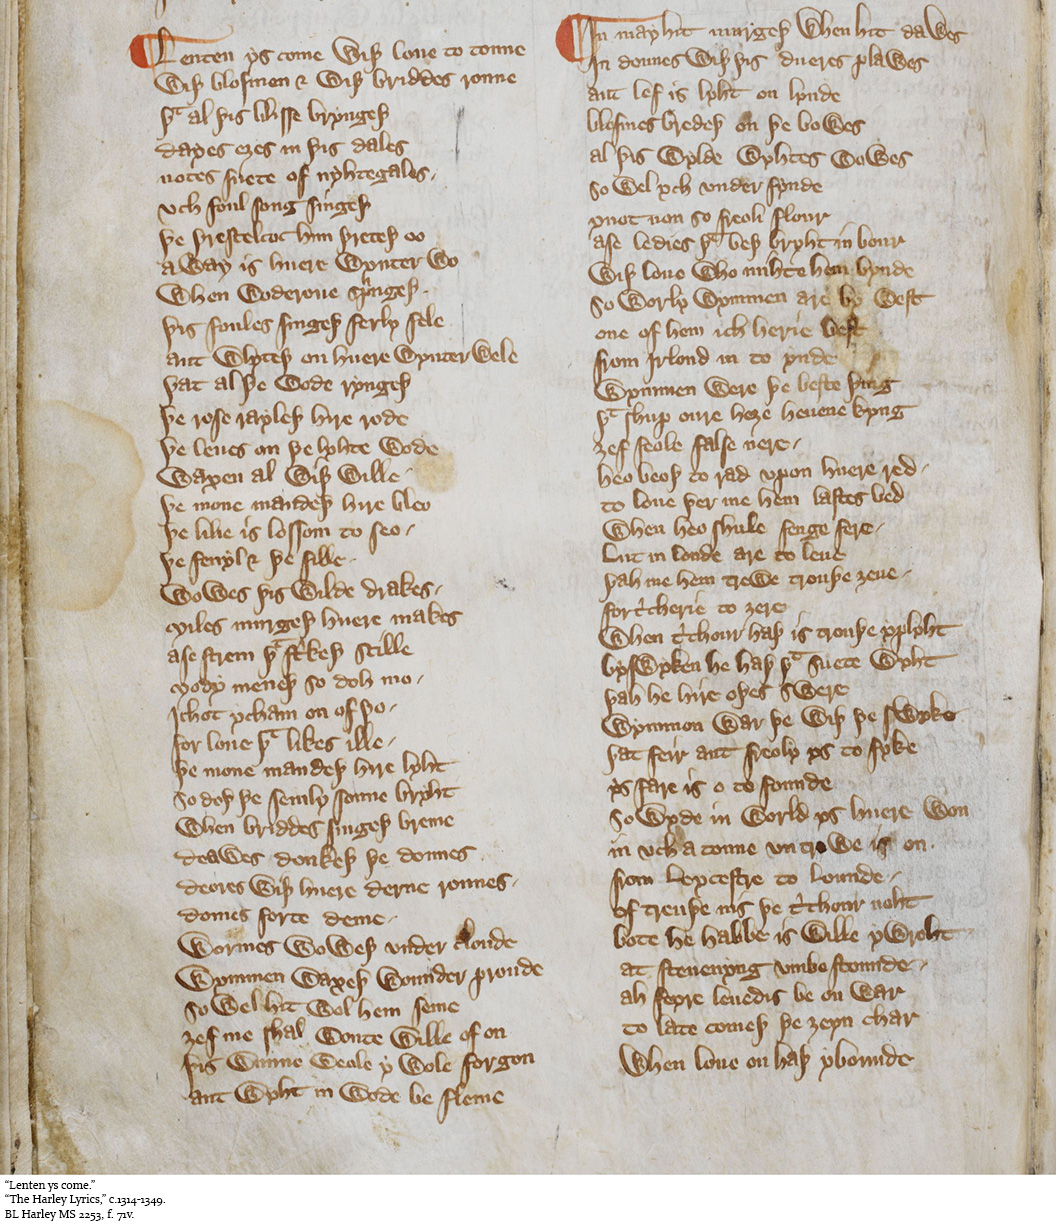 Lenten ys come Wiþ loue to toune
Wiþ blosmen & Wiþ briddes roune
þᵗ al þis blisse bryngeþ
dayes eȝes in þis dales
notes suete of nyhtegales.
vch foul song singeþ
þe þrestelcoc him þreteþ oo
aWay is huere Wynter Wo
When Woderoue springeþ.
þis foules singeþ ferly fele
ant Wlyteþ on huere Wynter Wele
þat al þe Wode ryngeþ
þe rose rayleþ hire rode
þe leues on þe lyhte Wode
Waxen al Wiþ Wille.
þe mone mandeþ hire bleo
þe lilie is lossom to seo.
þe fenyl & þe fille.
WoWes þis Wilde drakes.
miles murgeþ huere makes
ase strem þᵗ strikeþ stille
mody meneþ so doh mo.
Ichot ycham on of þo.
for loue þᵗ likes ille.
þe mone mandeþ hire lyht
so doþ þe semly sonne bryht
When briddes singeþ breme
deaWes donkeþ þe dounes
deores Wiþ huere derne rounes.
domes forte deme.
Wormes WoWeþ vnder cloude
Wymmen Waxeþ Wounder proude
so Wel hit Wol hem seme
ȝef me shal Wonte Wille of on
þis Wunne Weole y Wole forgon
ant Wyht in Wode be fleme
In may hit murgeþ When hit daWes
In dounes Wiþ þis dueres plaWes
ant lef is lyht on lynde
blosmes bredeþ on þe boWes
al þis Wylde Wyhtes WoWes
so Wel ych vnder fynde
ynot non so freoli flour
ase ledies þᵗ beþ bryht in bour
Wiþ loue Who mihte hem bynde
so Worly Wymmen are by West
one of hem ich herie best
from Irlond in to ynde
Wymmen Were þe beste þing
þᵗ shup oure heȝe heuene kyng
ȝef feole false nere.
heo beoþ to rad vpon huere red.
to loue þer me hem lastes bed
When heo shule fenge fere.
Lut in londe are to leue
þah me hem treWe trouþe ȝeue.
for tricherie to ȝere
When trichour haþ is trouþe yplyht
bysWyken he haþ þᵗ suete Wyht
þah he hire oþes sWere
Wymmon War þe Wiþ þe sWyke
þat feir ant freoly ys to fyke
ys fare is o to founde
so Wyde in World ys huere Won
in vch a toune vntreWe is on.
from Leycestre to Lounde.
of treuþe nis þe trichour noht
bote he habbe is Wille yWroht
at steuenyng vmbe stounde.
ah feyre leuedis be on War
to late comeþ þe ȝeyn char
When loue ou haþ ybounde
“Lenten ys come.”
“The Harley Lyrics,” c.1314-1349.
BL Harley MS 2253, f. 71v.